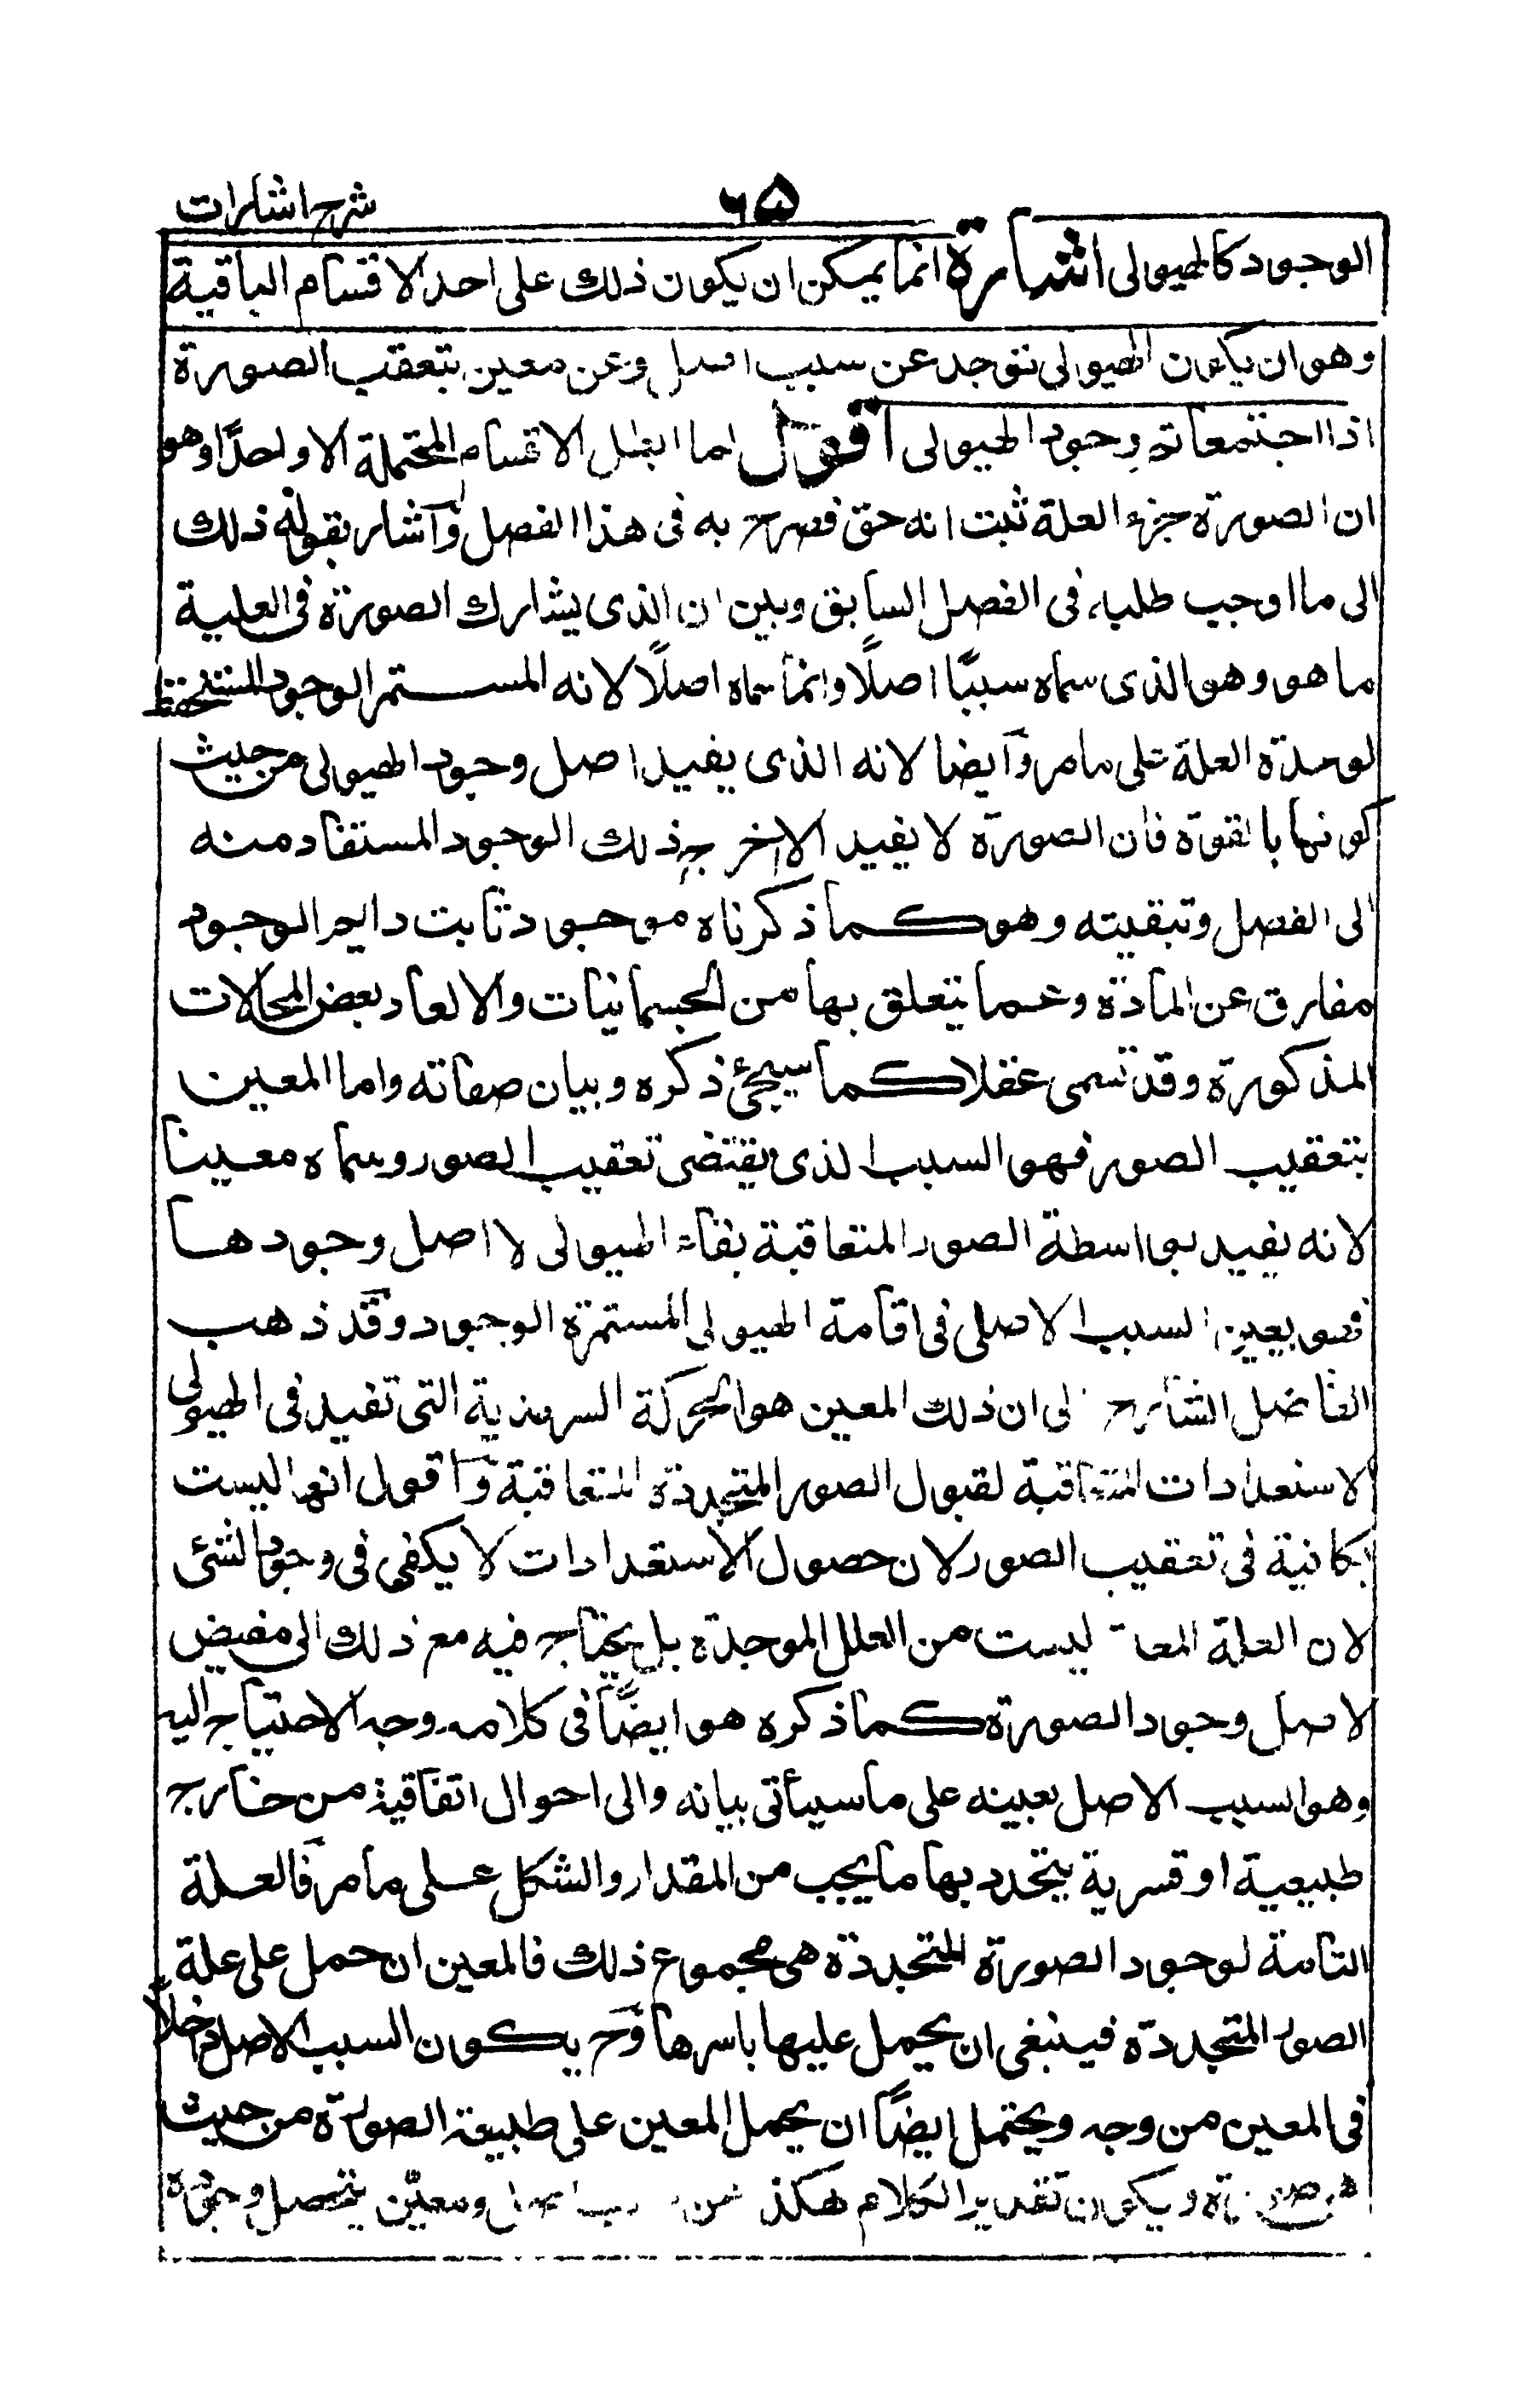 شرح اشارات
٦٥
الوجود كالهيولى اشارة انما يمكن ان يكون ذلك على احد الاقسام الباقية
وهو ان يكون الهيولى توجد عن سبب اصل وعن معين بتعقيب الصورة
اذا اجتمعا تم وجود الهيولى اقول لما ابطل الاقسام المحتملة الا واحدًا وهو
ان الصورة جزء العلة ثبت انه حق فصرح به فى هذا الفصل وآشار بقوله ذلك
الى ما اوجب طلبه فى الفصل السابق وبين ان الذى يشارك الصورة فى العلية
ما هو وهو الذى سماه سببًا اصلًا وانما سماه اصلًا لانه المستمر الوجود المستحفظ
لوحدة العلة على مامر وآيضا لانه الذى يفيد اصل وجود الهيولى من حيث
كونها بالقوة فان الصورة لا يفيد الا خرج ذلك الوجود المستفاد منه
الى الفصل وتبقيته وهو كما ذكرناه موجود ثابت دايم الوجود
مفارق عن المادة وعما يتعلق بها من الجسمانيات والالعاد بعض المحالات
المذكورة وقد تسمى عقلا كما سيجئ ذكره وبيان صفاته واما المعين
بتعقيب الصور فهو السبب الذى يقتضى تعقيب الصور وسماه معينا
لانه يفيد بواسطة الصور المتعاقبة بقاء الهيولى لا اصل وجودها
فهو يعين السبب الاصلى فى اقامة الهيولى المستمرة الوجود وقد ذهب
الفاضل الشارح الى ان ذلك المعين هو الحركة السرمدية التى تفيد فى الهيولى
الاستعدادات المتعاقبة لقبول الصور المتجددة المتعاقبة وآقول انها ليست
بكافية فى تعقيب الصور لان حصول الاستعدادات لا يكفى فى وجود الشئ
لان العلة المعدة ليست من العلل الموجدة بل يحتاج فيه مع ذلك الى مفيض
لاصل وجود الصورة كما ذكره هو ايضًا فى كلامه وجه الاحتياج اليه
وهو السبب الاصل بعينه على ما سيأتى بيانه والى احوال اتفاقية من خارج
طبيعية او قسرية يتحدد بها ما يجب من المقدار والشكل على ما مر فالعلة
التامة لوجود الصورة المتجددة هى مجموع ذلك فالمعين ان حمل على علة
الصور المتجددة فينبغى ان يحمل عليها باسرها وح يكون السبب الاصل داخلًا
فى المعين من وجه ويحتمل ايضًا ان يحمل المعين على طبيعة الصورة من حيث
هى صورة ويكون تقدير الكلام هكذا عن سبب اصل ومعين يتحصل وجوده